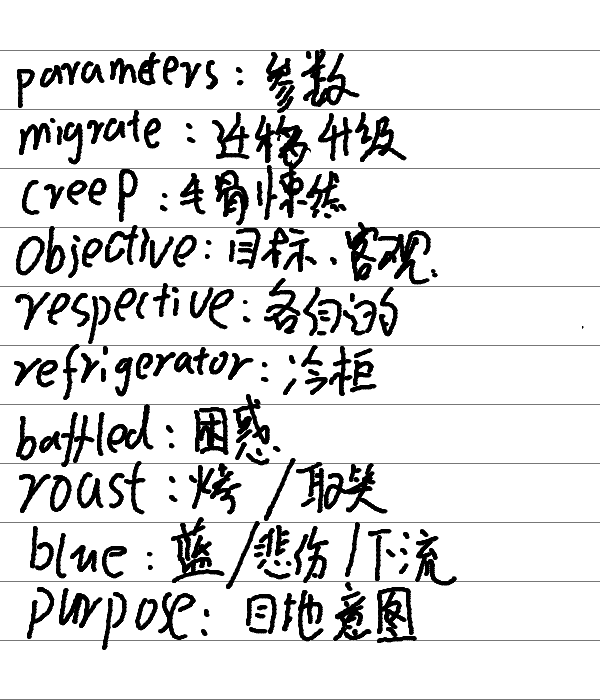 parameters：参数
migrate：迁移升级
creep：毛骨悚然
Objective：目标、客观.
respective：各自的
refrigerator：冷柜
baffled：困惑.
roast：烤/取笑
blue：蓝/悲伤/下流
purpose：目地意图